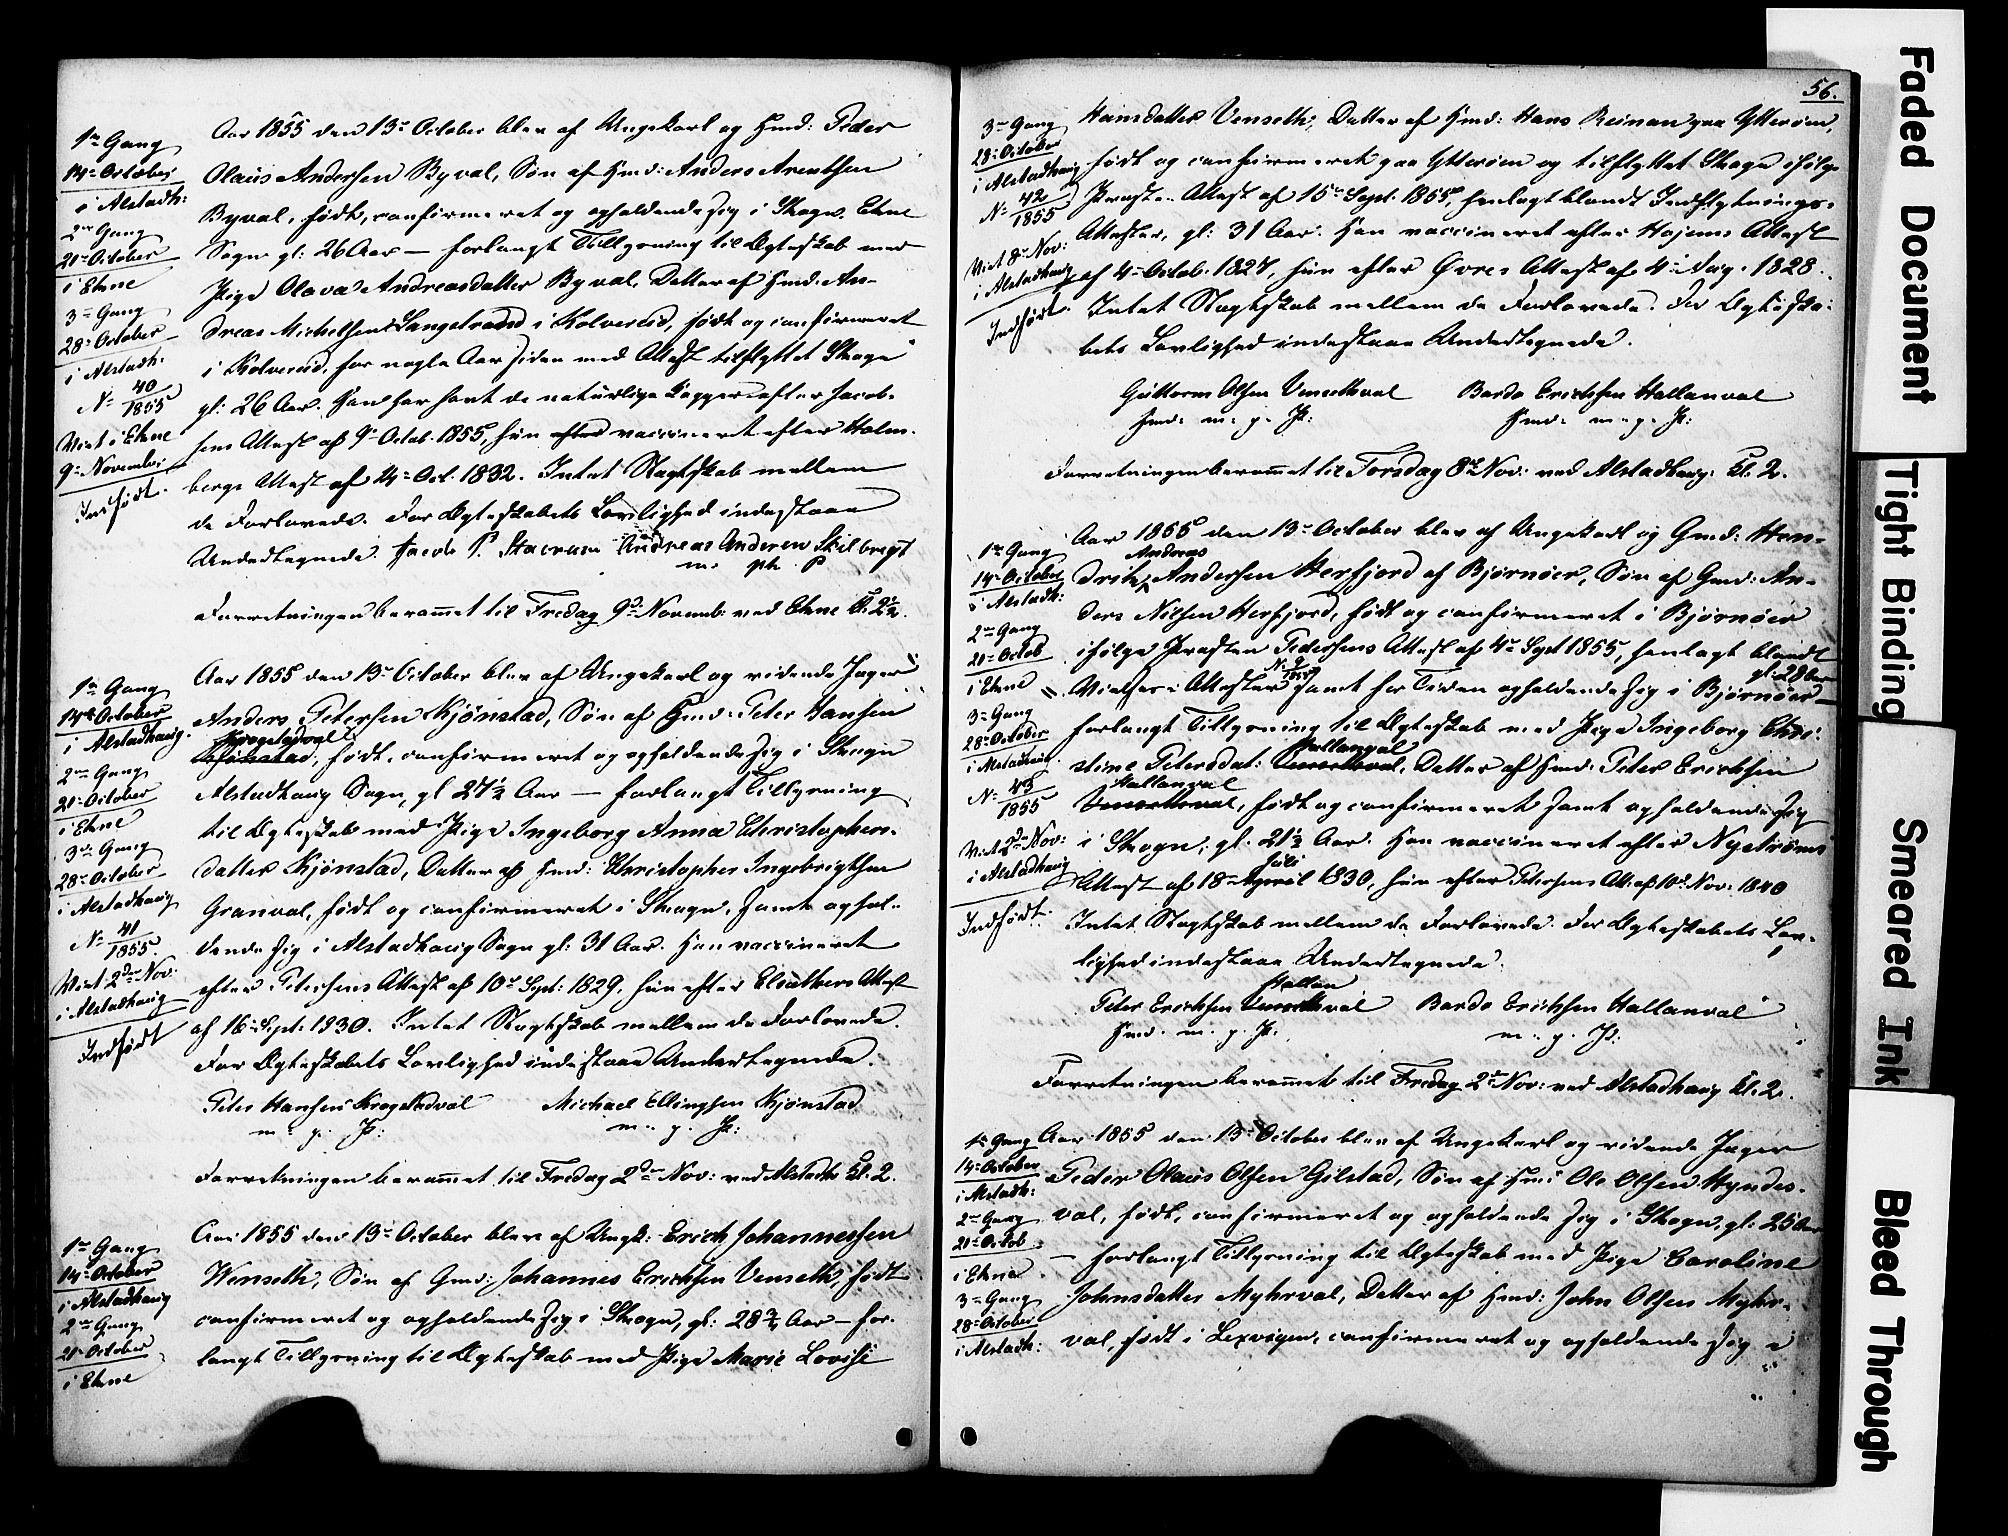 1ste Gang
14de October
i Alstadh:
2den Gang
21de October
i Ekne
3die Gang
28de October
i Alstadh:
No 40/1855
Viet i Ekne
9de November
Indført.
Aar 1855 den 13de October blev af Ungekarl og Hmd: Peder
Olaus Andersen Byval, Søn af Hmd: Anders Arentsen
Byval, født, confirmeret og opholdende sig i Skogn, Ekne
Sogn gl: 26 Aar – forlangt Tillysning til Ægteskab med
Pige Olava Andreasdatter Byval, Datter af Hmd: An-
dreas Michelsen Langstrand i Kolvereid, født og confirmeret
i Kolvereid, for nogle Aar siden med Attest tilflyttet Skogn
gl: 26 Aar. Han har havt de naturlige Kopper efter Jacob-
sens Attest af 9de Octob. 1855, hun efter vaccineret efter Holm-
bergs Attest af 14de Oct. 1832. Intet Slægtskab mellem
de Forlovede. For Ægteskabets Lovlighed indestaae
Undertegnede. Jacob P. Stavrum Andreas Andersen Skilbregt
m: ph. P
Forretningen berammet til Fredag 9de Novemb: ved Ekne Kl. 2½.
1ste Gang
14de October
i Alstadhaug.
2den Gang
21de October
i Ekne
3die Gang
28de October
i Alstadhaug
No 41/1855.
Viet 2den Nov:
i Alstadhaug
Indført
Aar 1855 den 13de October blev af Ungekarl og ridende Jæger
Anders Petersen Kjønstad, Søn af Hmd: Peter Hansen
Krogstadval
Kjønstad, født, confirmeret og opholdende sig i Skogn
Alstadhaug Sogn, gl 27½ Aar – forlangt Tillysning
til Ægteskab med Pige Ingeborg Anna Christophers-
datter Kjønstad, Datter af Hmd: Christopher Ingebrigtsen
Granval, født og confirmeret i Skogn, samt ophol-
dende sig i Alstadhaug Sogn gl: 31 Aar. Han vaccineret
efter Petersens Attest af 10de Sept: 1829, hun efter Elsuthers Attest
af 16de Sept: 1830. Intet Slægtskab mellem de Forlovede.
For Ægteskabets Lovlighed indestaae Undertegnede.
Peter Hansen Krogstadval Michael Ellingsen Kjønstad
m: p. P: m: p. P:
Forretningen berammet til Fredag 2den Nov: ved Alstadh: Kl. 2.
1ste Gang
14de October
i Alstadhaug
2den Gang
21de October
i Ekne
Aar 1855 den 13de October blev af Ungk: Erich Johannessen
Wenseth, Søn af Gmd: Johannes Erichsen Venseth, født
confirmeret og opholdende sig i Skogn, gl: 28¾ Aar – for-
langt Tillysning til Ægteskab med Pige Marie Lovise
56.
3die Gang
28de October
i Alstadhaug
No 42/1855
Viet 8de Nov:
i Alstadhaug
Indført.
Hansdatter Venseth, Datter af Hmd: Hans Reinan paa Ytterøen,
født og confirmeret paa Ytterøen og tilflyttet Skogn ifølge
Præsten Attest af 15de Sept: 1855, henlagt blandt Indflytnings-
Attester, gl: 31 Aar. Han vaccineret efter Hojems Attest
af 4de Octob. 1827, hun efter Øvres Attest af 4de Aug. 1828.
Intet Slægtskab mellem de Forlovede. For Ægteska-
bets Lovlighed indestaae Undertegnede.
Guttorm Olsen Vensethval Bardo Erichsen Hallanval
Hmd: m: p. P: Hmd: m: p. P:
Forretningen berammet til Torsdag 8de Nov: ved Alstadhaug: Kl. 2.
1ste Gang
14de October
i Alstadh:
2den Gang
21de Octob
i Ekne
3die Gang
28de October
i Alstadhaug.
No 43/1855
Viet 2den Nov:
i Alstadhaug
Indført.
Aar 1855 den 13de October blev af Ungekarl og Gmd: Hen-
Andreas
drik Andersen Herfjord af Bjørnøer, Søn af Gmd: An-
ders Nilsen Herfjord, født og confirmeret i Bjørnøer
ifølge Præsten Petersens Attest af 4de Sept 1855, henlagt blandt
No 9/1855 gl: 28 Aar
Vielses-Attester samt for Tiden opholdende sig i Bjørnøer –
forlangt Tillysning til Ægteskab med Pige Ingeborg Chri-
Hallanval
stine Petersdat: Vensethval, Datter af Hmd: Peter Erichsen
Hallanval
Vensethval, født og confirmeret samt opholdende sig
i Skogn, gl: 21½ Aar. Han vaccineret efter Nystrøms
Juli
Attest af 18de April 1830, hun efter Petersens Att: af 10de Nov: 1840
Intet Slægtskab mellem de Forlovede. For Ægteskabets Lov-
lighed indestaae Undertegnede.
Hallan
Peter Erichsen Vensethval Bardo Erichsen Hallanval
Hmd. m: p. P: m: p. P:
Forretningen berammet til Fredag 2den Nov: ved Alstadhaug Kl. 2.
1ste Gang
14de October
i Alstadh:
2den Gang
21de Octob
i Ekne
3die Gang
28de October
i Alstadh:
Aar 1855 den 13de October blev af Ungekarl og ridende Jæger
Peder Olaus Olsen Gilstad, Søn af Hmd: Ole Olsen Hyndes-
val, født, confirmeret og opholdende sig i Skogn, gl. 25 Aar
– forlangt Tillysning til Ægteskab med Pige Caroline
Johnsdatter Myhrval, Datter af Hmd: John Olsen Myhr-
val, født i Lexvigen, confirmeret og opholdende sig i
Faded Document
Tight Binding
Smeared Ink
Bleed Through